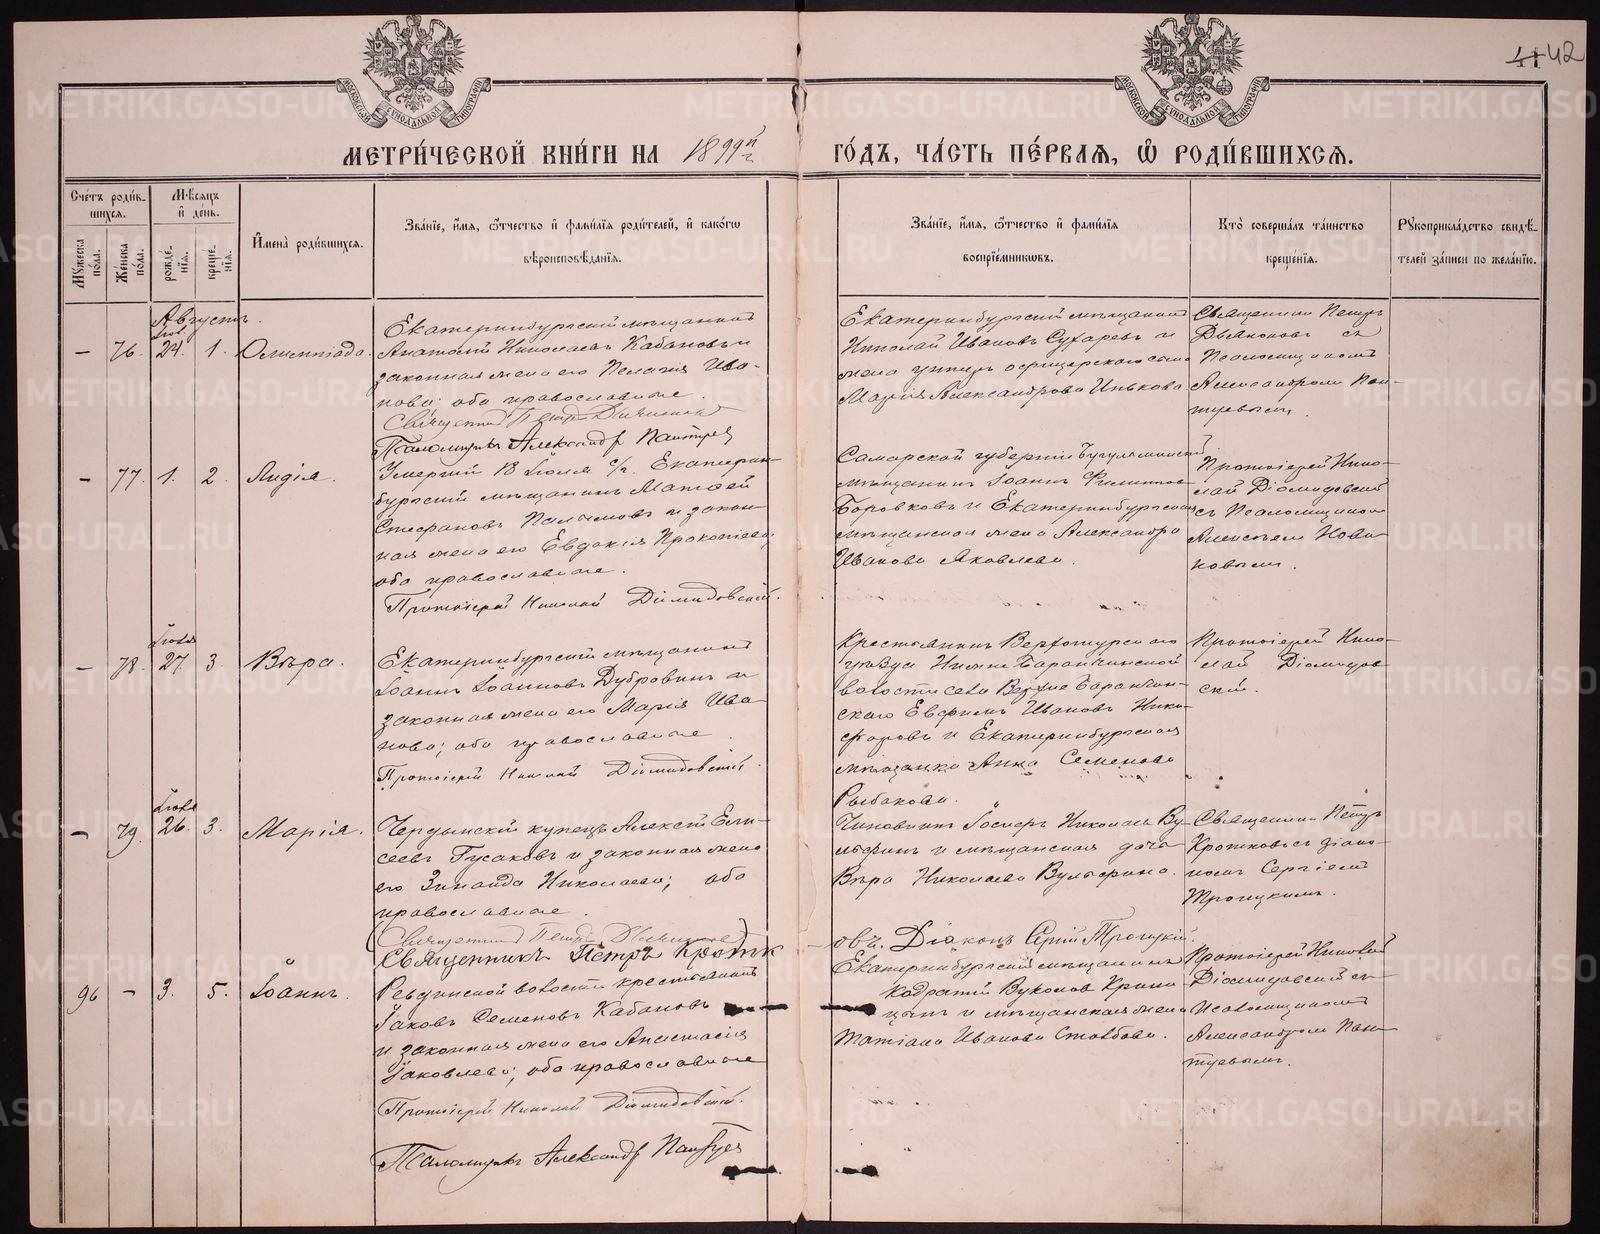 41 42
МОСКОВСКОЙ СѴНОДАЛЬНОЙ ТИПОГРАФІИ
МОСКОВСКОЙ СѴНОДАЛЬНОЙ ТИПОГРАФІИ
МЕТРИ́ЧЕСКОЙ КНИ́ГИ НА 1899й г.
ГО́ДЪ, ЧА́СТЬ ПЕ́РВАЯ, Ѡ РОДИ́ВШИХСЯ.
Сче́тъ роди́вшихся.
Мꙋ́жеска по́ла.
Же́нска по́ла.
Мѣ́сяцъ и҆ де́нь.
рожде́нїя.
креще́нїя.
И҆мена̀ роди́вшихся.
Зва́нїе, и҆́мя, ѻ҆́тчество и҆ фами́лїя роди́телей, и҆ како́гѡ
вѣроисповѣ́данїя.
Зва́нїе, и҆́мя, ѻ҆́тчество и҆ фами́лїя
воспрїе́мникѡвъ.
Кто̀ соверша́лъ та́инство
креще́нїя.
Рꙋкоприкла́дство свидѣ́-
телей за́писи по жела́нїю.
Августъ.
— 76. 24. 1. Олимпіада.
Екатеринбургскій мѣщанинъ
Анатолій Николаевъ Кабановъ и
законная жена его Пелагія Ива-
нова; оба православные.
Священникъ Петръ Дьяконовъ
Псаломщикъ Александръ Пантуев
Екатеринбургскій мѣщанинъ
Николай Ивановъ Сухаревъ и
жена унтеръ офицерскаго сына
Марія Александрова Инькова
Священникъ Петръ
Дьяконовъ съ
Псаломщикомъ
Александромъ Пан-
туевымъ.
— 77. 1. 2. Лидія.
Умершій 18 Іюля с/г. Екатерин-
бургскій мѣщанинъ Матѳей
Стефановъ и закон-
ная жена его Евдокія Прокопіева,
оба православные.
Протоіерей Николай Діомидовскій.
Самарской губерніи Бугульминскій
мѣщанинъ Іоаннъ Филиппов
Боровковъ и Екатеринбургская
мѣщанская жена Александра
Иванова Яковлева.
Протоіерей Нико-
лай Діомидовскій
съ Псаломщикомъ
Алексѣемъ Нови-
ковымъ.
Іюля
— 78. 27. 3. Вѣра.
Екатеринбургскій мѣщанинъ
Іоаннъ Іоанновъ Дубровинъ и
законная жена его Марія Ива-
нова; оба православные.
Протоіерей Николай Діомидовскій.
Крестьянинъ Верхотурскаго
уѣзда Нижне Баранчинской
волости села Верхне Баранчин-
скаго Евфимъ Ивановъ Ники-
форовъ и Екатеринбургская
мѣщанка Анна Семенова
Рыбакова.
Протоіерей Нико-
лай Діомидов-
скій.
Іюля
— 79. 26. 3. Марія.
Чердынскій купецъ Алексѣй Ели-
сеевъ Гусаковъ и законная жена
его Зинаида Николаева; оба
православные.
Священникъ Петръ Дьяконовъ
Священникъ Петръ Кротк-
овъ. Діаконъ Сергій Троицкій.
Чиновникъ Николаевъ Ву-
льфинъ и мѣщанская дочь
Вѣра Николаева Вульфина.
Священникъ Петръ
Кротковъ съ діако-
номъ Сергіемъ
Троицкимъ.
96 — 3. 5. Іоаннъ.
Ревдинской волости крестьянинъ
Іаковъ Семеновъ Кабановъ
и законная жена его Анастасія
Іаковлева; оба православные
Протоіерей Николай Діомидовскій.
Псаломщикъ Александръ Пантуев
Екатеринбургскій мѣщанинъ
Кодратій Вуколов
и мѣщанская жена
Татіана Иванова Столбова.
Протоіерей Николай
Діомидовскій съ
Псаломщикомъ
Александромъ Пан-
туевымъ.
METRIKI.GASO-URAL.RU